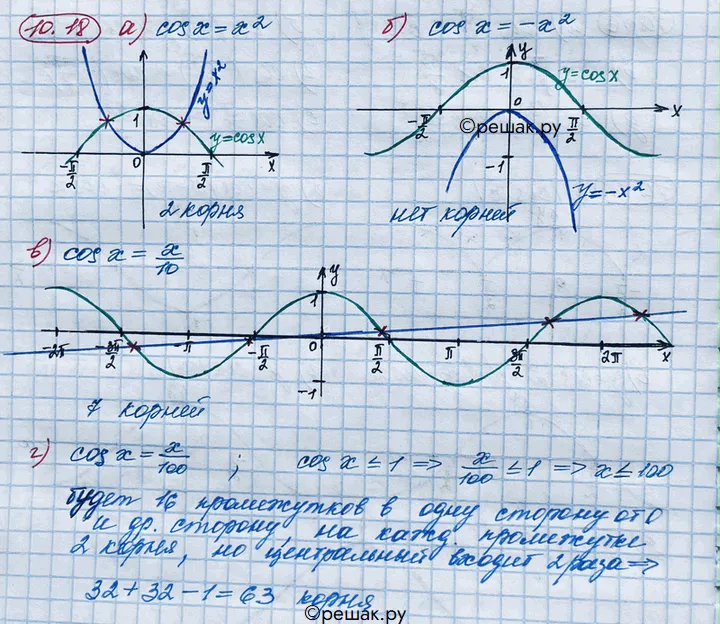 10.18 а) cos x = x² б) cos x = -x²
y y=x² 1 y=cos x
-π/2 0 π/2 x
1 y=cos x 0 x
-π/2 ©решак.ру π/2
-1 y=-x²
2 корня нет корней
в) cos x = x/10
y 1
-2π -3π/2 -π -π/2 0 π/2 π 3π/2 2π x
-1
7 корней
г) cos x = x/100 ; cos x ≤ 1 => x/100 ≤ 1 => x ≤ 100
будет 16 промежутков в одну сторону от 0
и др. сторону, на кажд. промежутке
2 корня, но центральный входит 2 раза =>
32+32-1=63 корня
©решак.ру